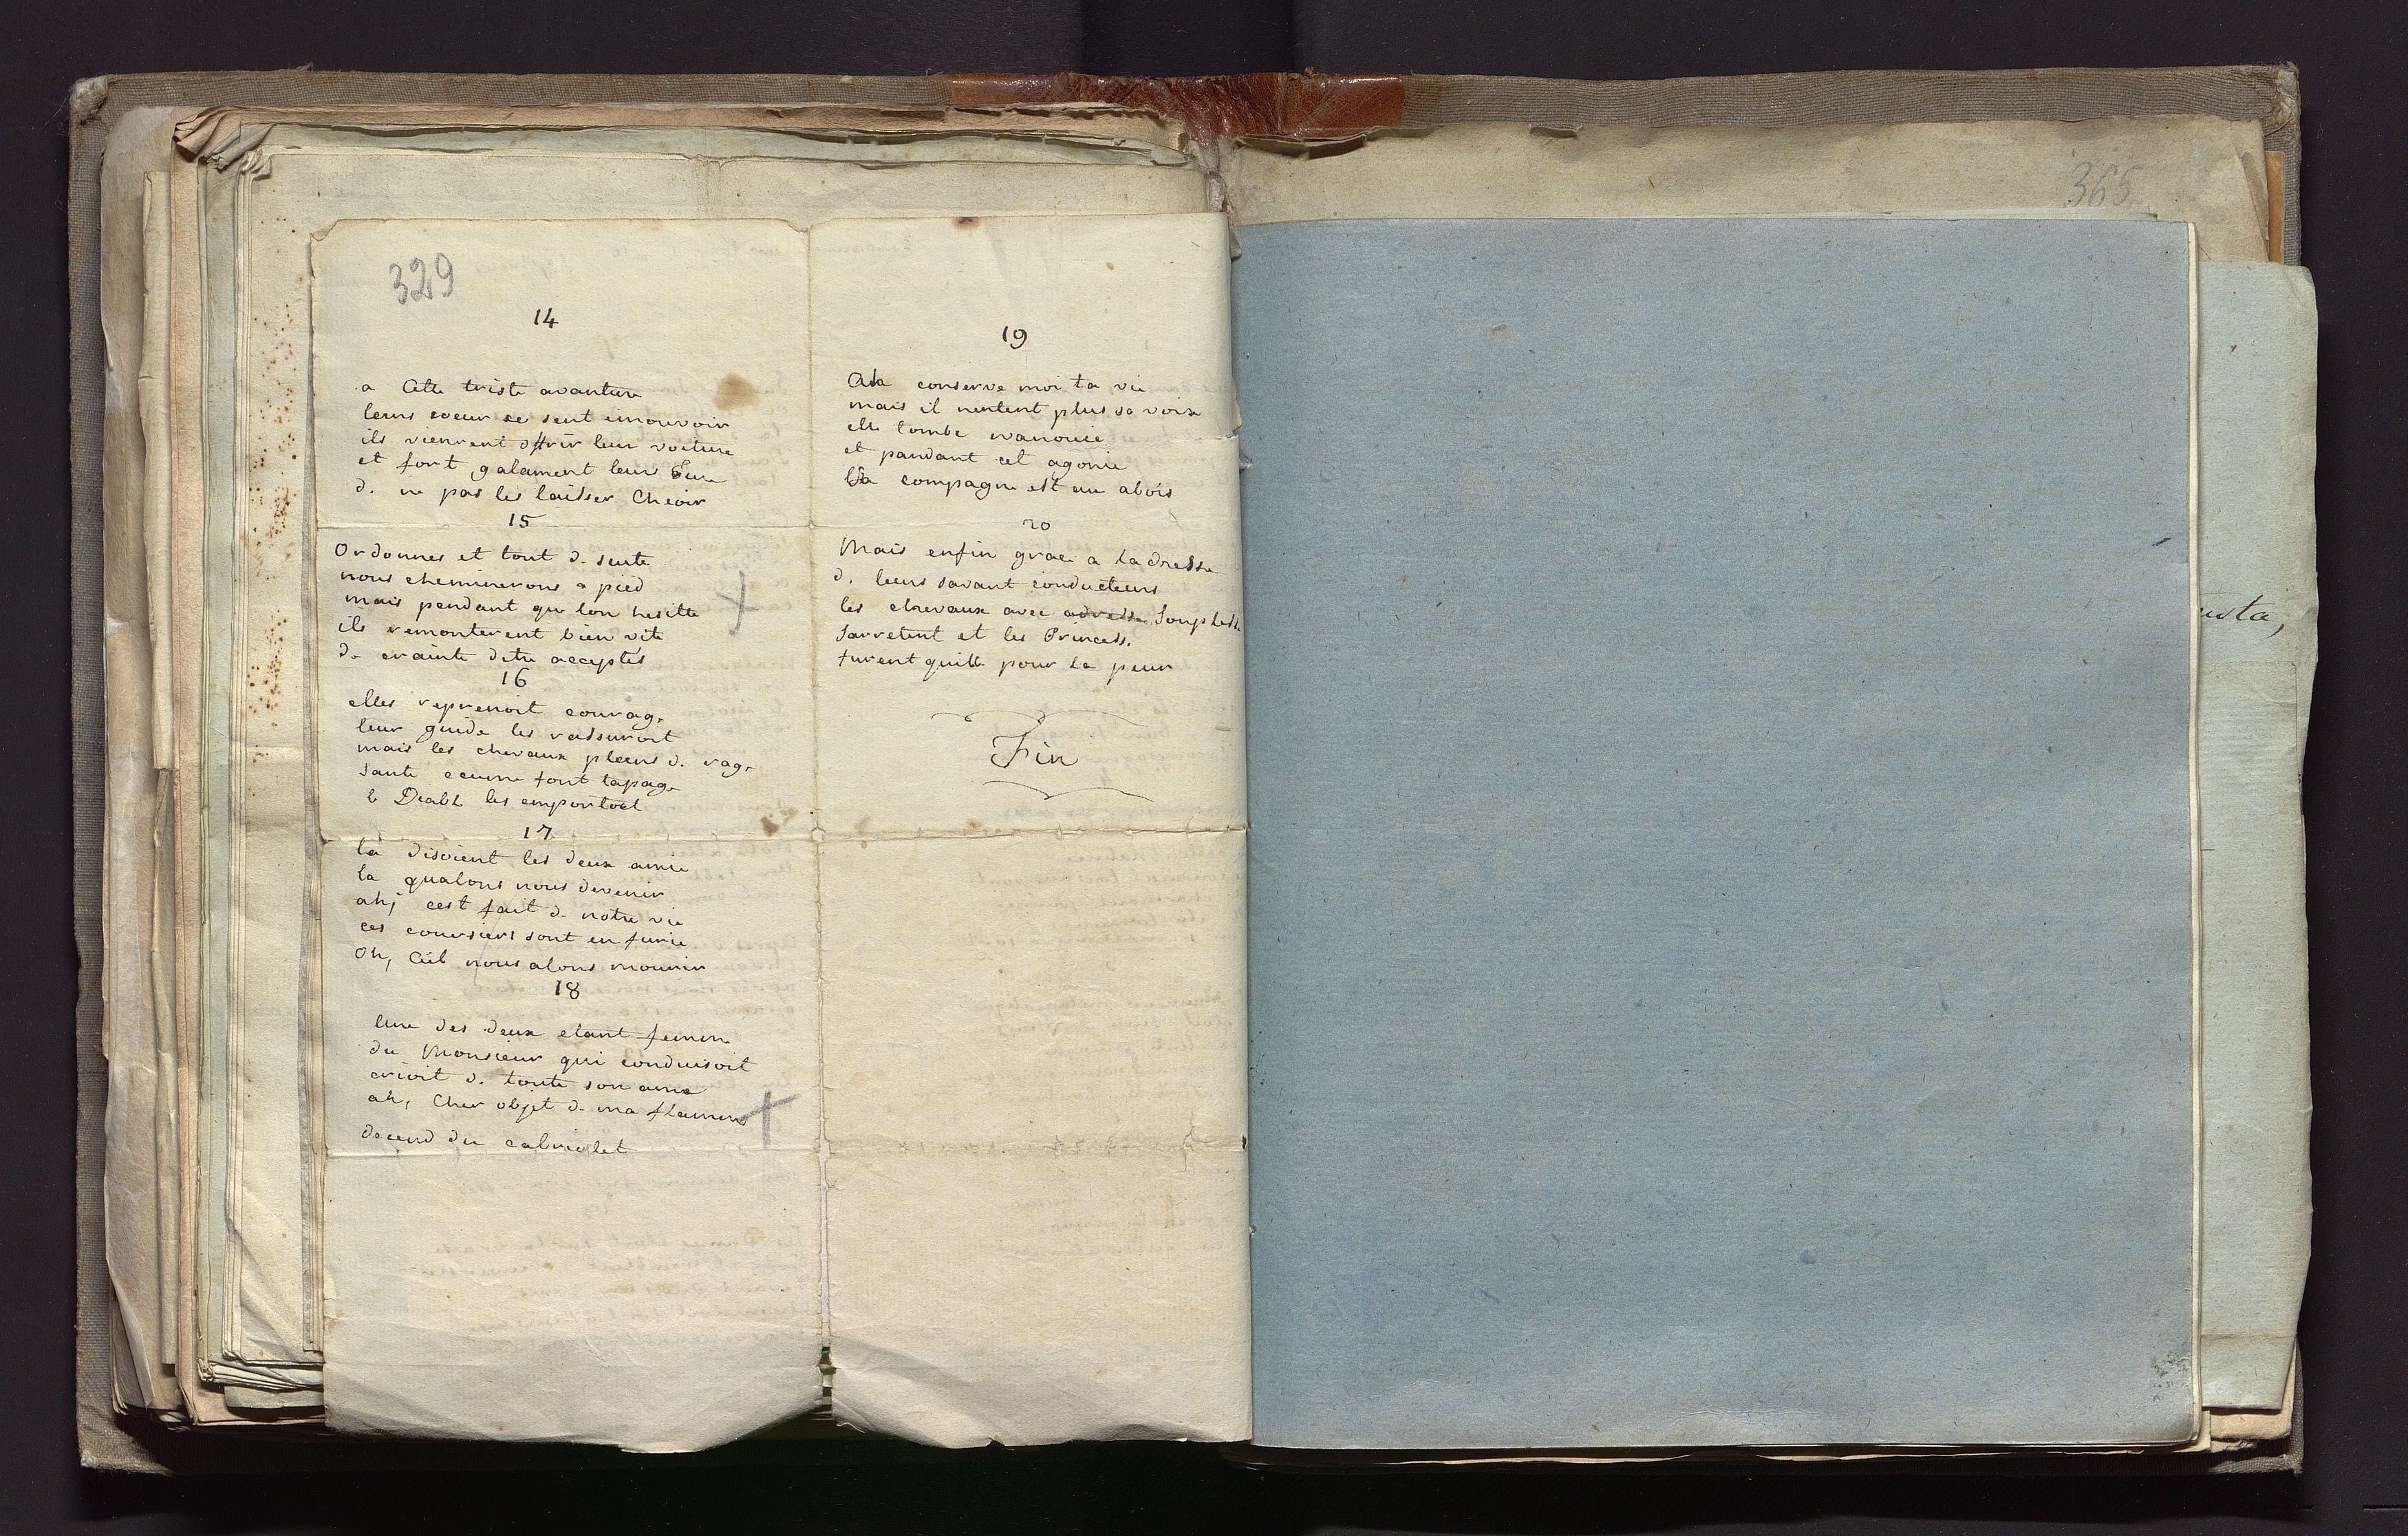 329
14
a Cette triste avanture
leurs coeur se sent emouvoir
ils vienrent offrir leur voiture
et fort galament leurs
d. ne pas les laisser Cheoir
15
Ordonnes et tout d. suite
nous cheminerons a pied
mais pendant que lon hesitte
ils remonterent bien vite
de crainte detre acceptés
16
elles reprenoit courage
leur guide les rassuroit
mais les chevaux pleins d. rage
saute ecume font tapage
le Diable les emportoit
17
la disoient les deux amie
la qualons nous devenir
ah, cest fait d. notre vie
ces coursiers sont en furie
Oh, Ciel nous alons mourir
18
Une des deux etant femme
du Monsieur qui conduisoit
crioit d. toute son ame
ah, Cher objet d. ma flamme
decend du cabriolet
19
Ah conserve moi ta vie
mais il nentent plus sa voix
elle tombe evanouie
et pandant cet agonie
la compagne est au abois
20
Mais enfin grace a ladresse
d. leurs savant conducteurs
les chevaux avec adresse Souplesse
sarretent et les Princess.
furent quitte pour la peur
Fin
365
usta,